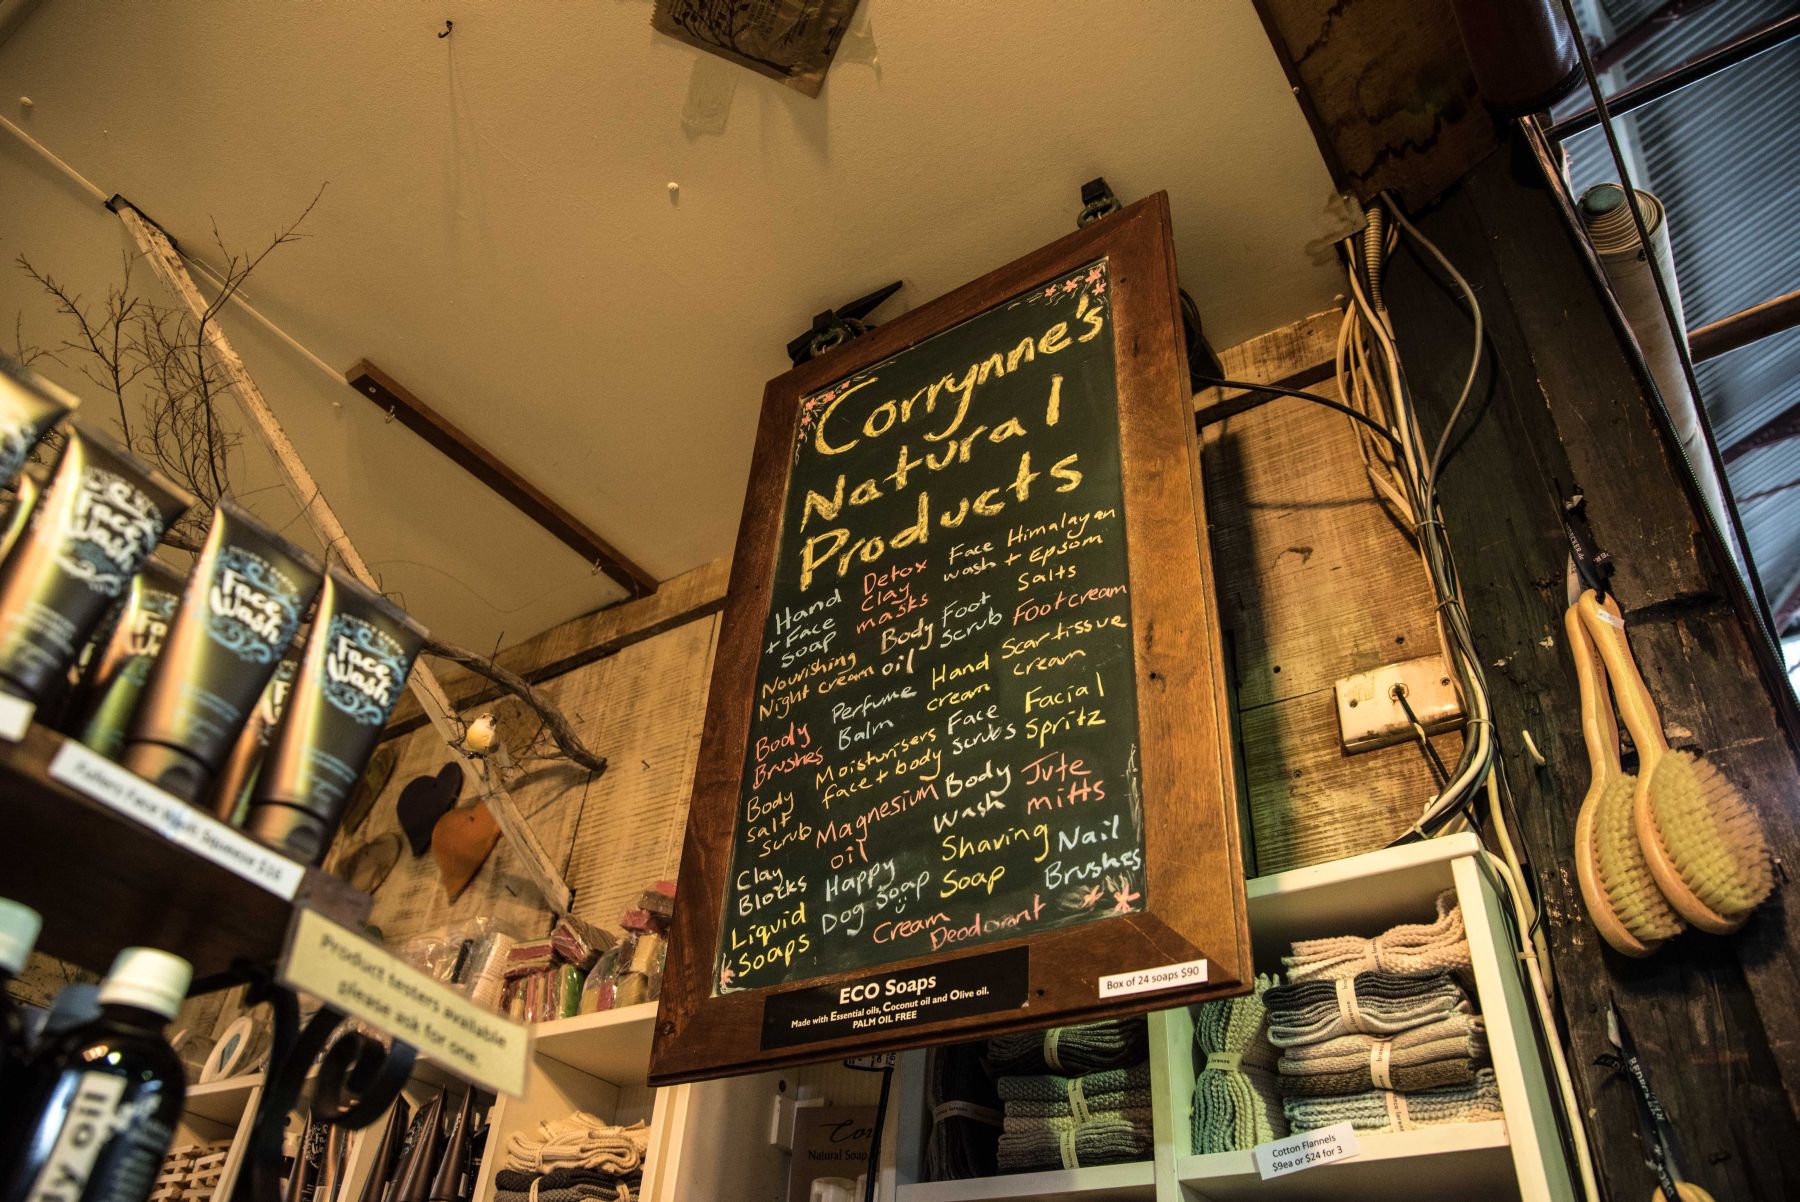 Corrynne's
Natural
Products
Hand
+ Face
Soap
Detox
Clay
masks
Face
wash
Himalayan
+ Epsom
Salts
Nourishing
Night cream
Body
oil
Foot
Scrub
Foot cream
Body
Brushes
Perfume
Balm
Hand
cream
Scar tissue
cream
Body
salt
Scrub
Moisturisers
face + body
Face
Scrubs
Facial
Spritz
Magnesium
oil
Body
Wash
Jute
mitts
Clay
Blocks
Happy
Dog Soap
Shaving
Soap
Nail
Brushes
Liquid
Soaps
Cream
Deodorant
ECO Soaps
Made with Essential oils, Coconut oil and Olive oil.
PALM OIL FREE
Box of 24 soaps $90
Face
Wash
Face
Wash
Face
Wash
Product testers available
please ask for one.
Natural Soap
Cotton Flannels
$9ea or $24 for 3